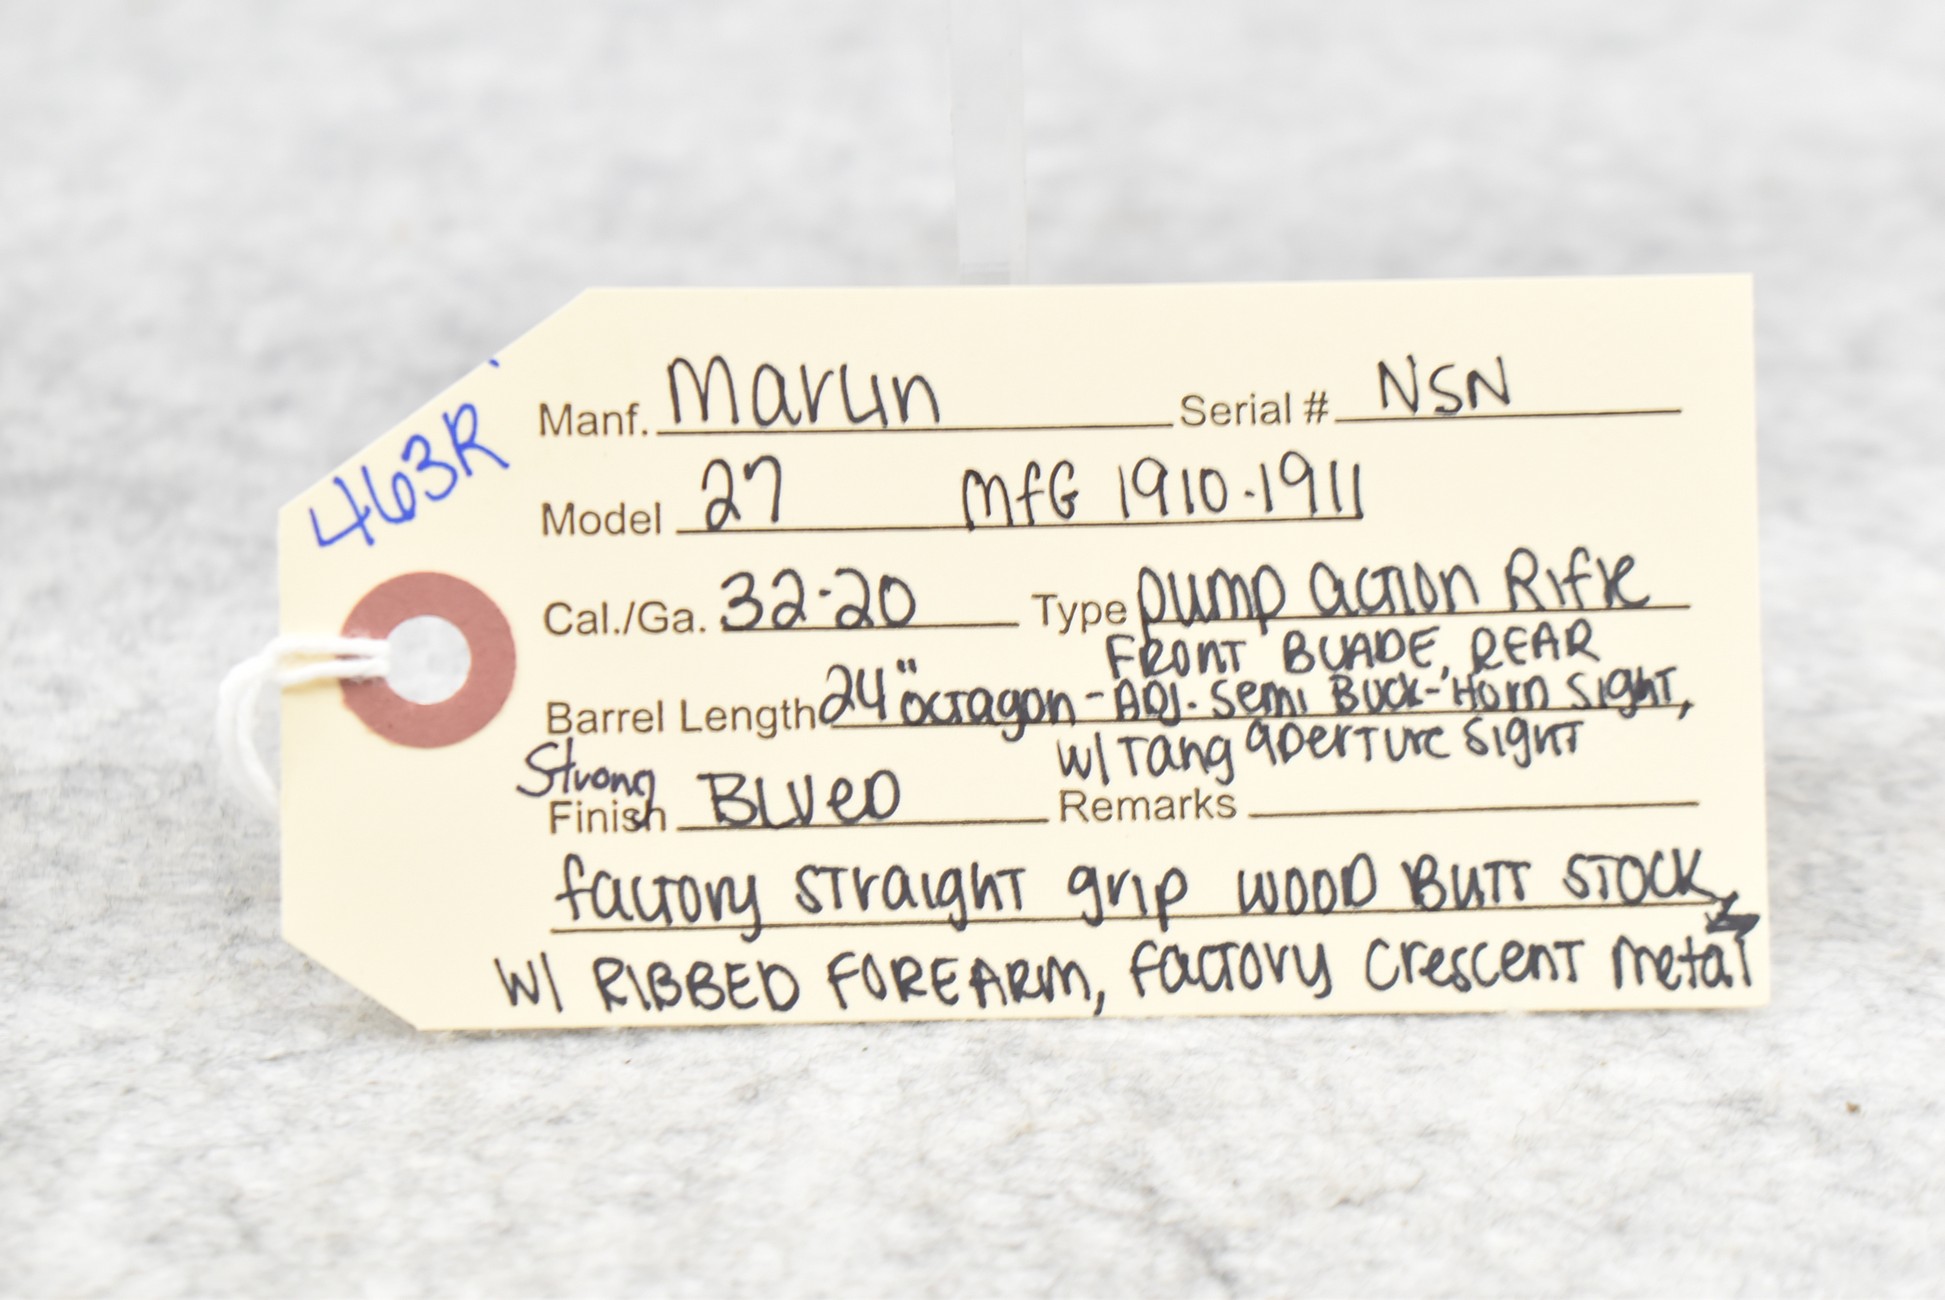 463R
Manf. Marlin Serial # NSN
Model 27 MfG 1910-1911
Cal./Ga. 32-20 Type pump action Rifle
FRONT BLADE, REAR
Barrel Length 24" octagon - ADJ. Semi Buck-Horn Sight,
W/ Tang aperture Sight
Strong
Finish Blued Remarks
factory straight grip wood Butt Stock
W/ RIBBED FOREARM, factory crescent metal